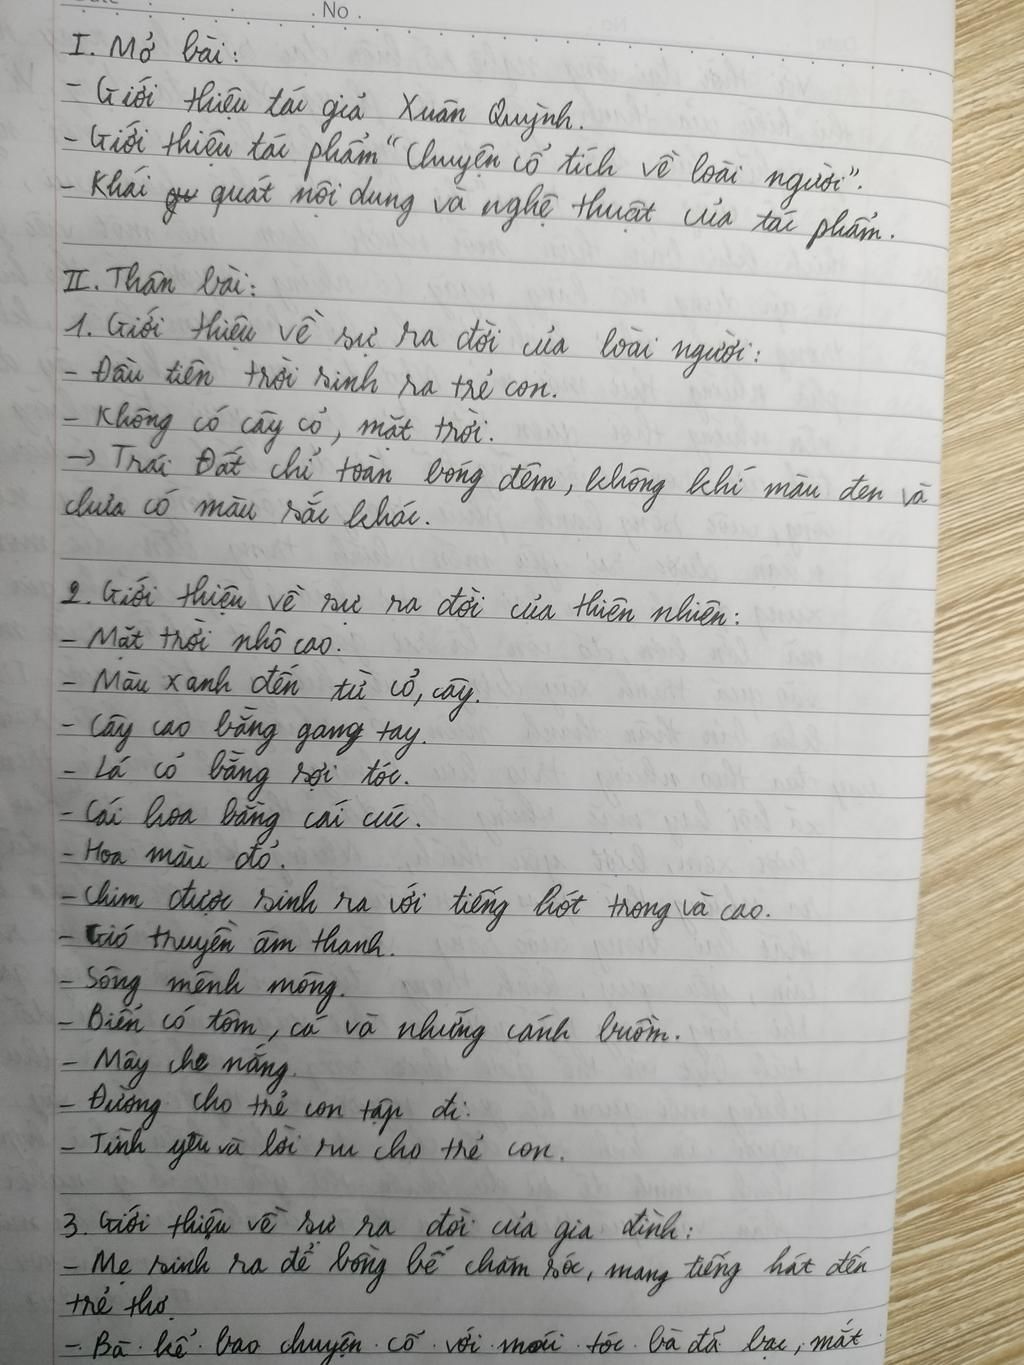 No
I. Mở bài:
- Giới thiệu tác giả Xuân Quỳnh.
- Giới thiệu tác phẩm "Chuyện cổ tích về loài người".
- Khái quát nội dung và nghệ thuật của tác phẩm.
II. Thân bài:
1. Giới thiệu về sự ra đời của loài người:
- Đầu tiên trời sinh ra trẻ con.
- Không có cây cỏ, mặt trời.
→ Trái Đất chỉ toàn bóng đêm, không khí màu đen và
chưa có màu sắc khác.
2. Giới thiệu về sự ra đời của thiên nhiên:
- Mặt trời nhô cao.
- Màu xanh đến từ cỏ, cây.
- Cây cao bằng gang tay.
- Lá cỏ bằng sợi tóc.
- Cái hoa bằng cái cúc.
- Hoa màu đỏ.
- Chim được sinh ra với tiếng hót trong và cao.
- Gió truyền âm thanh.
- Sông mênh mông.
- Biển có tôm, cá và những cánh buồm.
- Mây che nắng.
- Đường cho trẻ con tập đi.
- Tình yêu và lời ru cho trẻ con.
3. Giới thiệu về sự ra đời của gia đình:
- Mẹ sinh ra để bồng bế chăm sóc, mang tiếng hát đến
trẻ thơ
- Bà kể bao chuyện cổ với mái tóc bà đã bạc, mắt